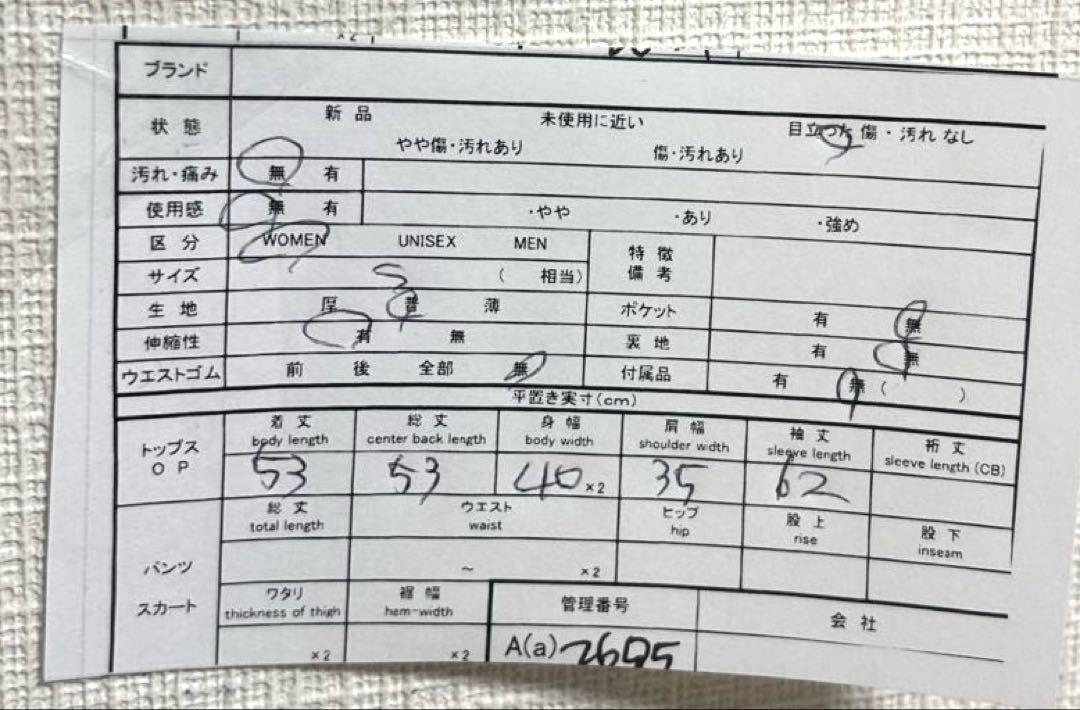 ×2
ブランド
状態 新品 未使用に近い 目立った傷・汚れなし
やや傷・汚れあり 傷・汚れあり
汚れ・痛み 無 有
使用感 無 有 ・やや ・あり ・強め
区分 WOMEN UNISEX MEN 特徴備考
サイズ S ( 相当)
生地 厚 普 薄 ポケット 有 無
伸縮性 有 無 裏地 有 無
ウエストゴム 前 後 全部 無 付属品 有 無 ( )
平置き実寸(cm)
トップス OP
着丈 総丈 身幅 肩幅 袖丈 裄丈
body length center back length body width shoulder width sleeve length sleeve length (CB)
53 53 40 ×2 35 62
総丈 ウエスト ヒップ 股上 股下
total length waist hip rise inseam
パンツ スカート
～ ×2
ワタリ 裾幅 管理番号 会社
thickness of thigh hem-width
×2 ×2 A(a)2695